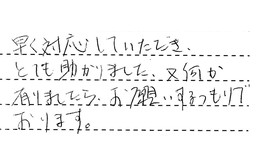 早く対応していただき、
とても助かりました。又何か
有りましたら、お願いするつもりで
おります。